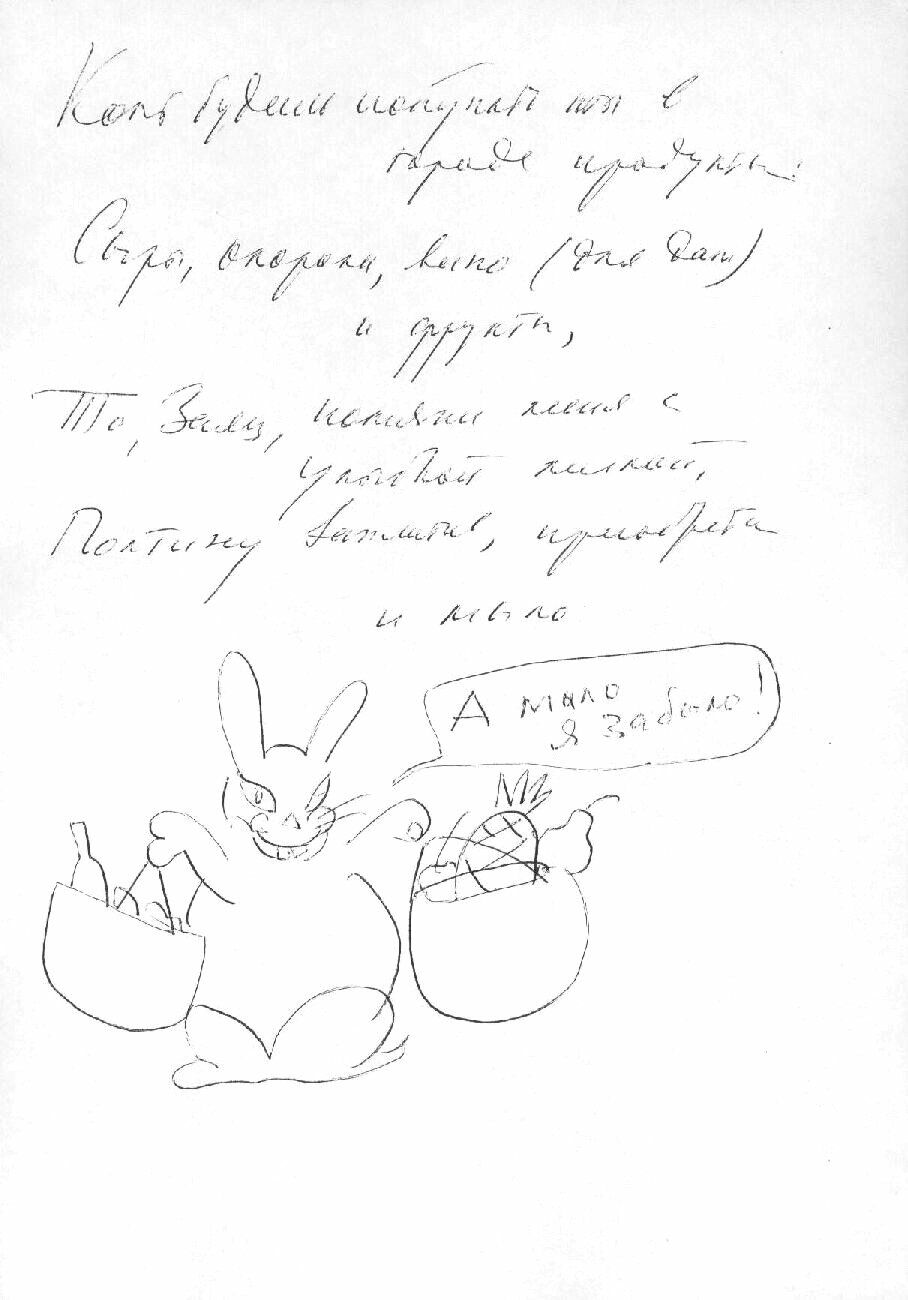 Коль будешь покупать ты в
городе продукты:
Сыры, окорока, вино (для дам)
и фрукты,
То, Заяц, помяни меня с
улыбкой милкой,
Полтину заплатив, приобрети
и мыло
А мыло
я забыло!